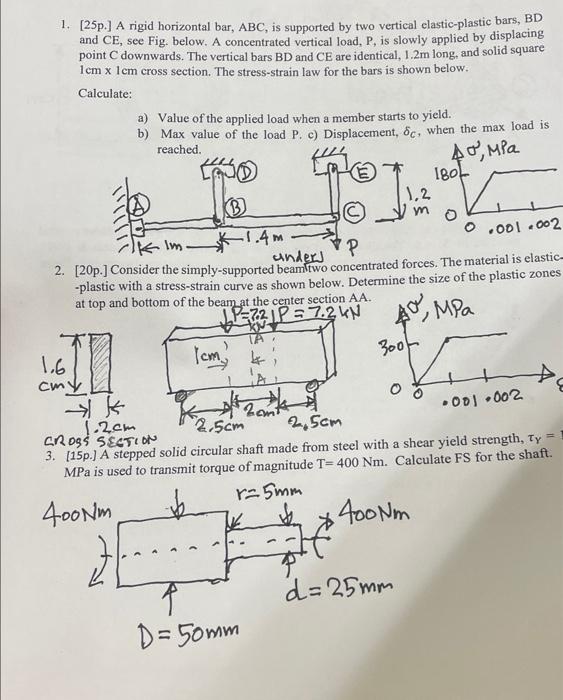 1. [25p.] A rigid horizontal bar, ABC, is supported by two vertical elastic-plastic bars, BD
and CE, see Fig. below. A concentrated vertical load, P, is slowly applied by displacing
point C downwards. The vertical bars BD and CE are identical, 1.2m long, and solid square
1cm x 1cm cross section. The stress-strain law for the bars is shown below.
Calculate:
a) Value of the applied load when a member starts to yield.
b) Max value of the load P. c) Displacement, δC, when the max load is
reached.
D
E
σ, MPa
180
A
B
C
1.2
m
0
0 .001 .002
1m
1.4m
P
under
2. [20p.] Consider the simply-supported beam two concentrated forces. The material is elastic-
-plastic with a stress-strain curve as shown below. Determine the size of the plastic zones
at top and bottom of the beam at the center section AA.
P=7.2
KN
P = 7.2 KN
σ, MPa
300
1.6
cm
1cm
A
A
0
0
.001 .002
ε
1.2cm
2.5cm
2cm
2.5cm
CROSS SECTION
3. [15p.] A stepped solid circular shaft made from steel with a shear yield strength, τY =
MPa is used to transmit torque of magnitude T= 400 Nm. Calculate FS for the shaft.
r=5mm
400Nm
400Nm
d=25mm
D=50mm